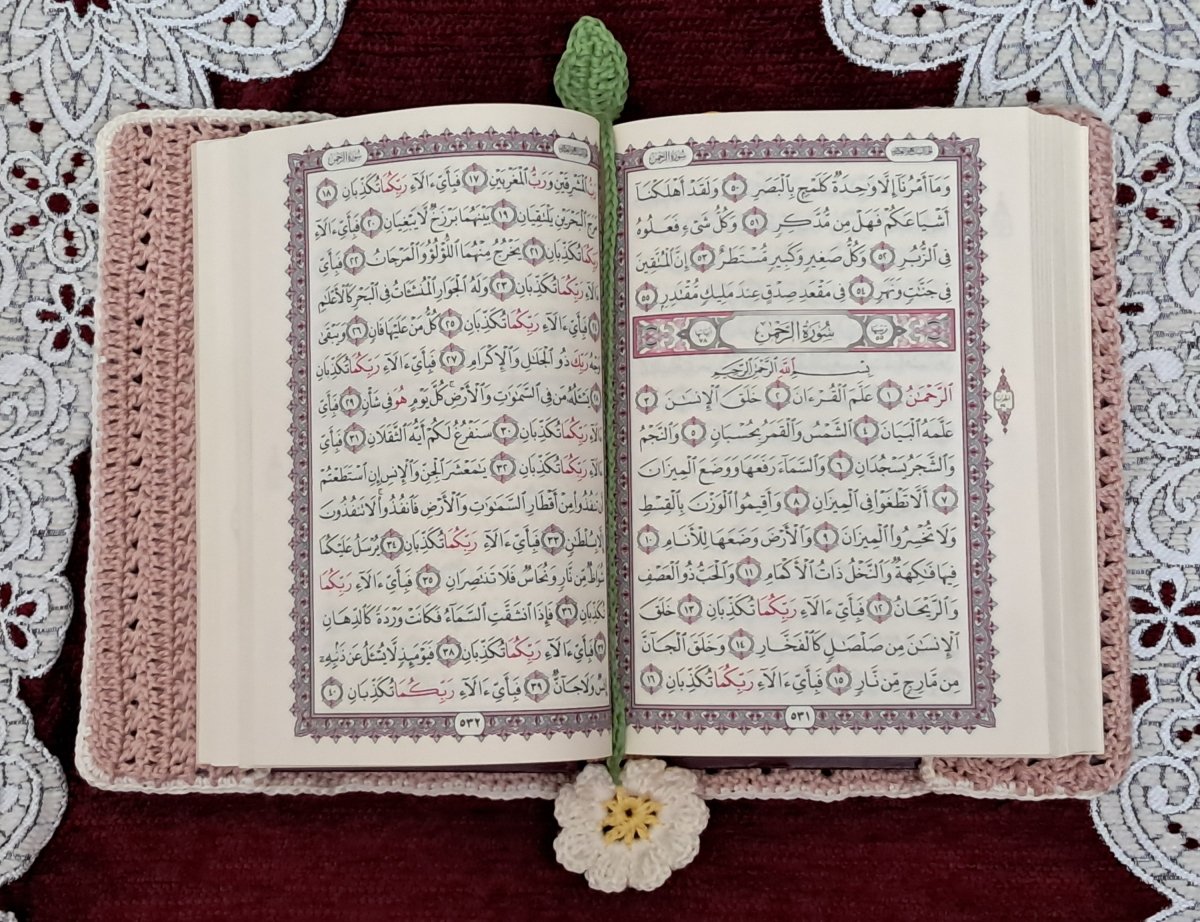 سُورَةُ الرَّحْمَٰن
وَمَآ أَمْرُنَآ إِلَّا وَٰحِدَةٌ كَلَمْحٍۭ بِٱلْبَصَرِ ٥٠ وَلَقَدْ أَهْلَكْنَآ
أَشْيَاعَكُمْ فَهَلْ مِن مُّدَّكِرٍ ٥١ وَكُلُّ شَىْءٍ فَعَلُوهُ
فِى ٱلزُّبُرِ ٥٢ وَكُلُّ صَغِيرٍ وَكَبِيرٍ مُّسْتَطَرٌ ٥٣ إِنَّ ٱلْمُتَّقِينَ
فِى جَنَّٰتٍ وَنَهَرٍ ٥٤ فِى مَقْعَدِ صِدْقٍ عِندَ مَلِيكٍ مُّقْتَدِرٍۭ ٥٥
سُورَةُ الرَّحْمَٰن
بِسْمِ ٱللَّهِ ٱلرَّحْمَٰنِ ٱلرَّحِيمِ
ٱلرَّحْمَٰنُ ١ عَلَّمَ ٱلْقُرْءَانَ ٢ خَلَقَ ٱلْإِنسَٰنَ ٣
عَلَّمَهُ ٱلْبَيَانَ ٤ ٱلشَّمْسُ وَٱلْقَمَرُ بِحُسْبَانٍ ٥ وَٱلنَّجْمُ
وَٱلشَّجَرُ يَسْجُدَانِ ٦ وَٱلسَّمَآءَ رَفَعَهَا وَوَضَعَ ٱلْمِيزَانَ
٧ أَلَّا تَطْغَوْا۟ فِى ٱلْمِيزَانِ ٨ وَأَقِيمُوا۟ ٱلْوَزْنَ بِٱلْقِسْطِ
وَلَا تُخْسِرُوا۟ ٱلْمِيزَانَ ٩ وَٱلْأَرْضَ وَضَعَهَا لِلْأَنَامِ ١٠
فِيهَا فَٰكِهَةٌ وَٱلنَّخْلُ ذَاتُ ٱلْأَكْمَامِ ١١ وَٱلْحَبُّ ذُو ٱلْعَصْفِ
وَٱلرَّيْحَانُ ١٢ فَبِأَىِّ ءَالَآءِ رَبِّكُمَا تُكَذِّبَانِ ١٣ خَلَقَ
ٱلْإِنسَٰنَ مِن صَلْصَٰلٍ كَٱلْفَخَّارِ ١٤ وَخَلَقَ ٱلْجَآنَّ
مِن مَّارِجٍ مِّن نَّارٍ ١٥ فَبِأَىِّ ءَالَآءِ رَبِّكُمَا تُكَذِّبَانِ ١٦
٥٣١
سُورَةُ الرَّحْمَٰن
ٱلْمَشْرِقَيْنِ وَرَبُّ ٱلْمَغْرِبَيْنِ ١٧ فَبِأَىِّ ءَالَآءِ رَبِّكُمَا تُكَذِّبَانِ ١٨
مَرَجَ ٱلْبَحْرَيْنِ يَلْتَقِيَانِ ١٩ بَيْنَهُمَا بَرْزَخٌ لَّا يَبْغِيَانِ ٢٠ فَبِأَىِّ ءَالَآءِ
رَبِّكُمَا تُكَذِّبَانِ ٢١ يَخْرُجُ مِنْهُمَا ٱللُّؤْلُؤُ وَٱلْمَرْجَانُ ٢٢ فَبِأَىِّ
ءَالَآءِ رَبِّكُمَا تُكَذِّبَانِ ٢٣ وَلَهُ ٱلْجَوَارِ ٱلْمُنشَـَٔاتُ فِى ٱلْبَحْرِ كَٱلْأَعْلَٰمِ
فَبِأَىِّ ءَالَآءِ رَبِّكُمَا تُكَذِّبَانِ ٢٥ كُلُّ مَنْ عَلَيْهَا فَانٍ ٢٦ وَيَبْقَىٰ
وَجْهُ رَبِّكَ ذُو ٱلْجَلَٰلِ وَٱلْإِكْرَامِ ٢٧ فَبِأَىِّ ءَالَآءِ رَبِّكُمَا تُكَذِّبَانِ
يَسْـَٔلُهُۥ مَن فِى ٱلسَّمَٰوَٰتِ وَٱلْأَرْضِ كُلَّ يَوْمٍ هُوَ فِى شَأْنٍ ٢٩ فَبِأَىِّ
ءَالَآءِ رَبِّكُمَا تُكَذِّبَانِ ٣٠ سَنَفْرُغُ لَكُمْ أَيُّهَ ٱلثَّقَلَانِ ٣١ فَبِأَىِّ
ءَالَآءِ رَبِّكُمَا تُكَذِّبَانِ ٣٢ يَٰمَعْشَرَ ٱلْجِنِّ وَٱلْإِنسِ إِنِ ٱسْتَطَعْتُمْ
أَن تَنفُذُوا۟ مِنْ أَقْطَارِ ٱلسَّمَٰوَٰتِ وَٱلْأَرْضِ فَٱنفُذُوا۟ لَا تَنفُذُونَ
إِلَّا بِسُلْطَٰنٍ ٣٣ فَبِأَىِّ ءَالَآءِ رَبِّكُمَا تُكَذِّبَانِ ٣٤ يُرْسَلُ عَلَيْكُمَا
شُوَاظٌ مِّن نَّارٍ وَنُحَاسٌ فَلَا تَنتَصِرَانِ ٣٥ فَبِأَىِّ ءَالَآءِ رَبِّكُمَا
تُكَذِّبَانِ ٣٦ فَإِذَا ٱنشَقَّتِ ٱلسَّمَآءُ فَكَانَتْ وَرْدَةً كَٱلدِّهَانِ
فَبِأَىِّ ءَالَآءِ رَبِّكُمَا تُكَذِّبَانِ ٣٨ فَيَوْمَئِذٍ لَّا يُسْـَٔلُ عَن ذَنۢبِهِۦٓ
إِنسٌ وَلَا جَآنٌّ ٣٩ فَبِأَىِّ ءَالَآءِ رَبِّكُمَا تُكَذِّبَانِ ٤٠
٥٣٢